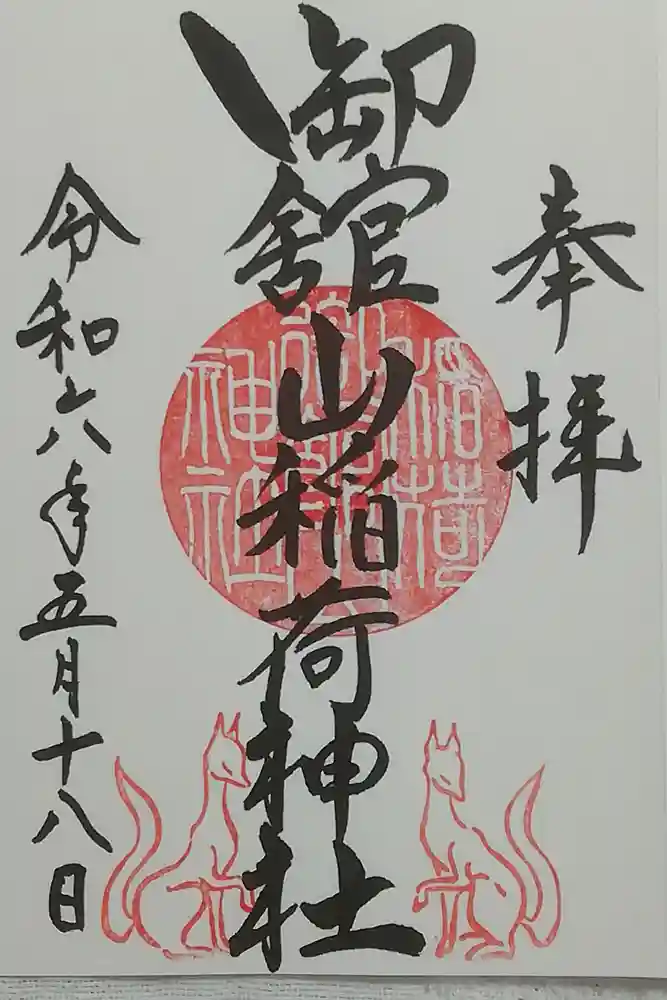 奉拝
御舘山稲荷神社
令和六年五月十八日